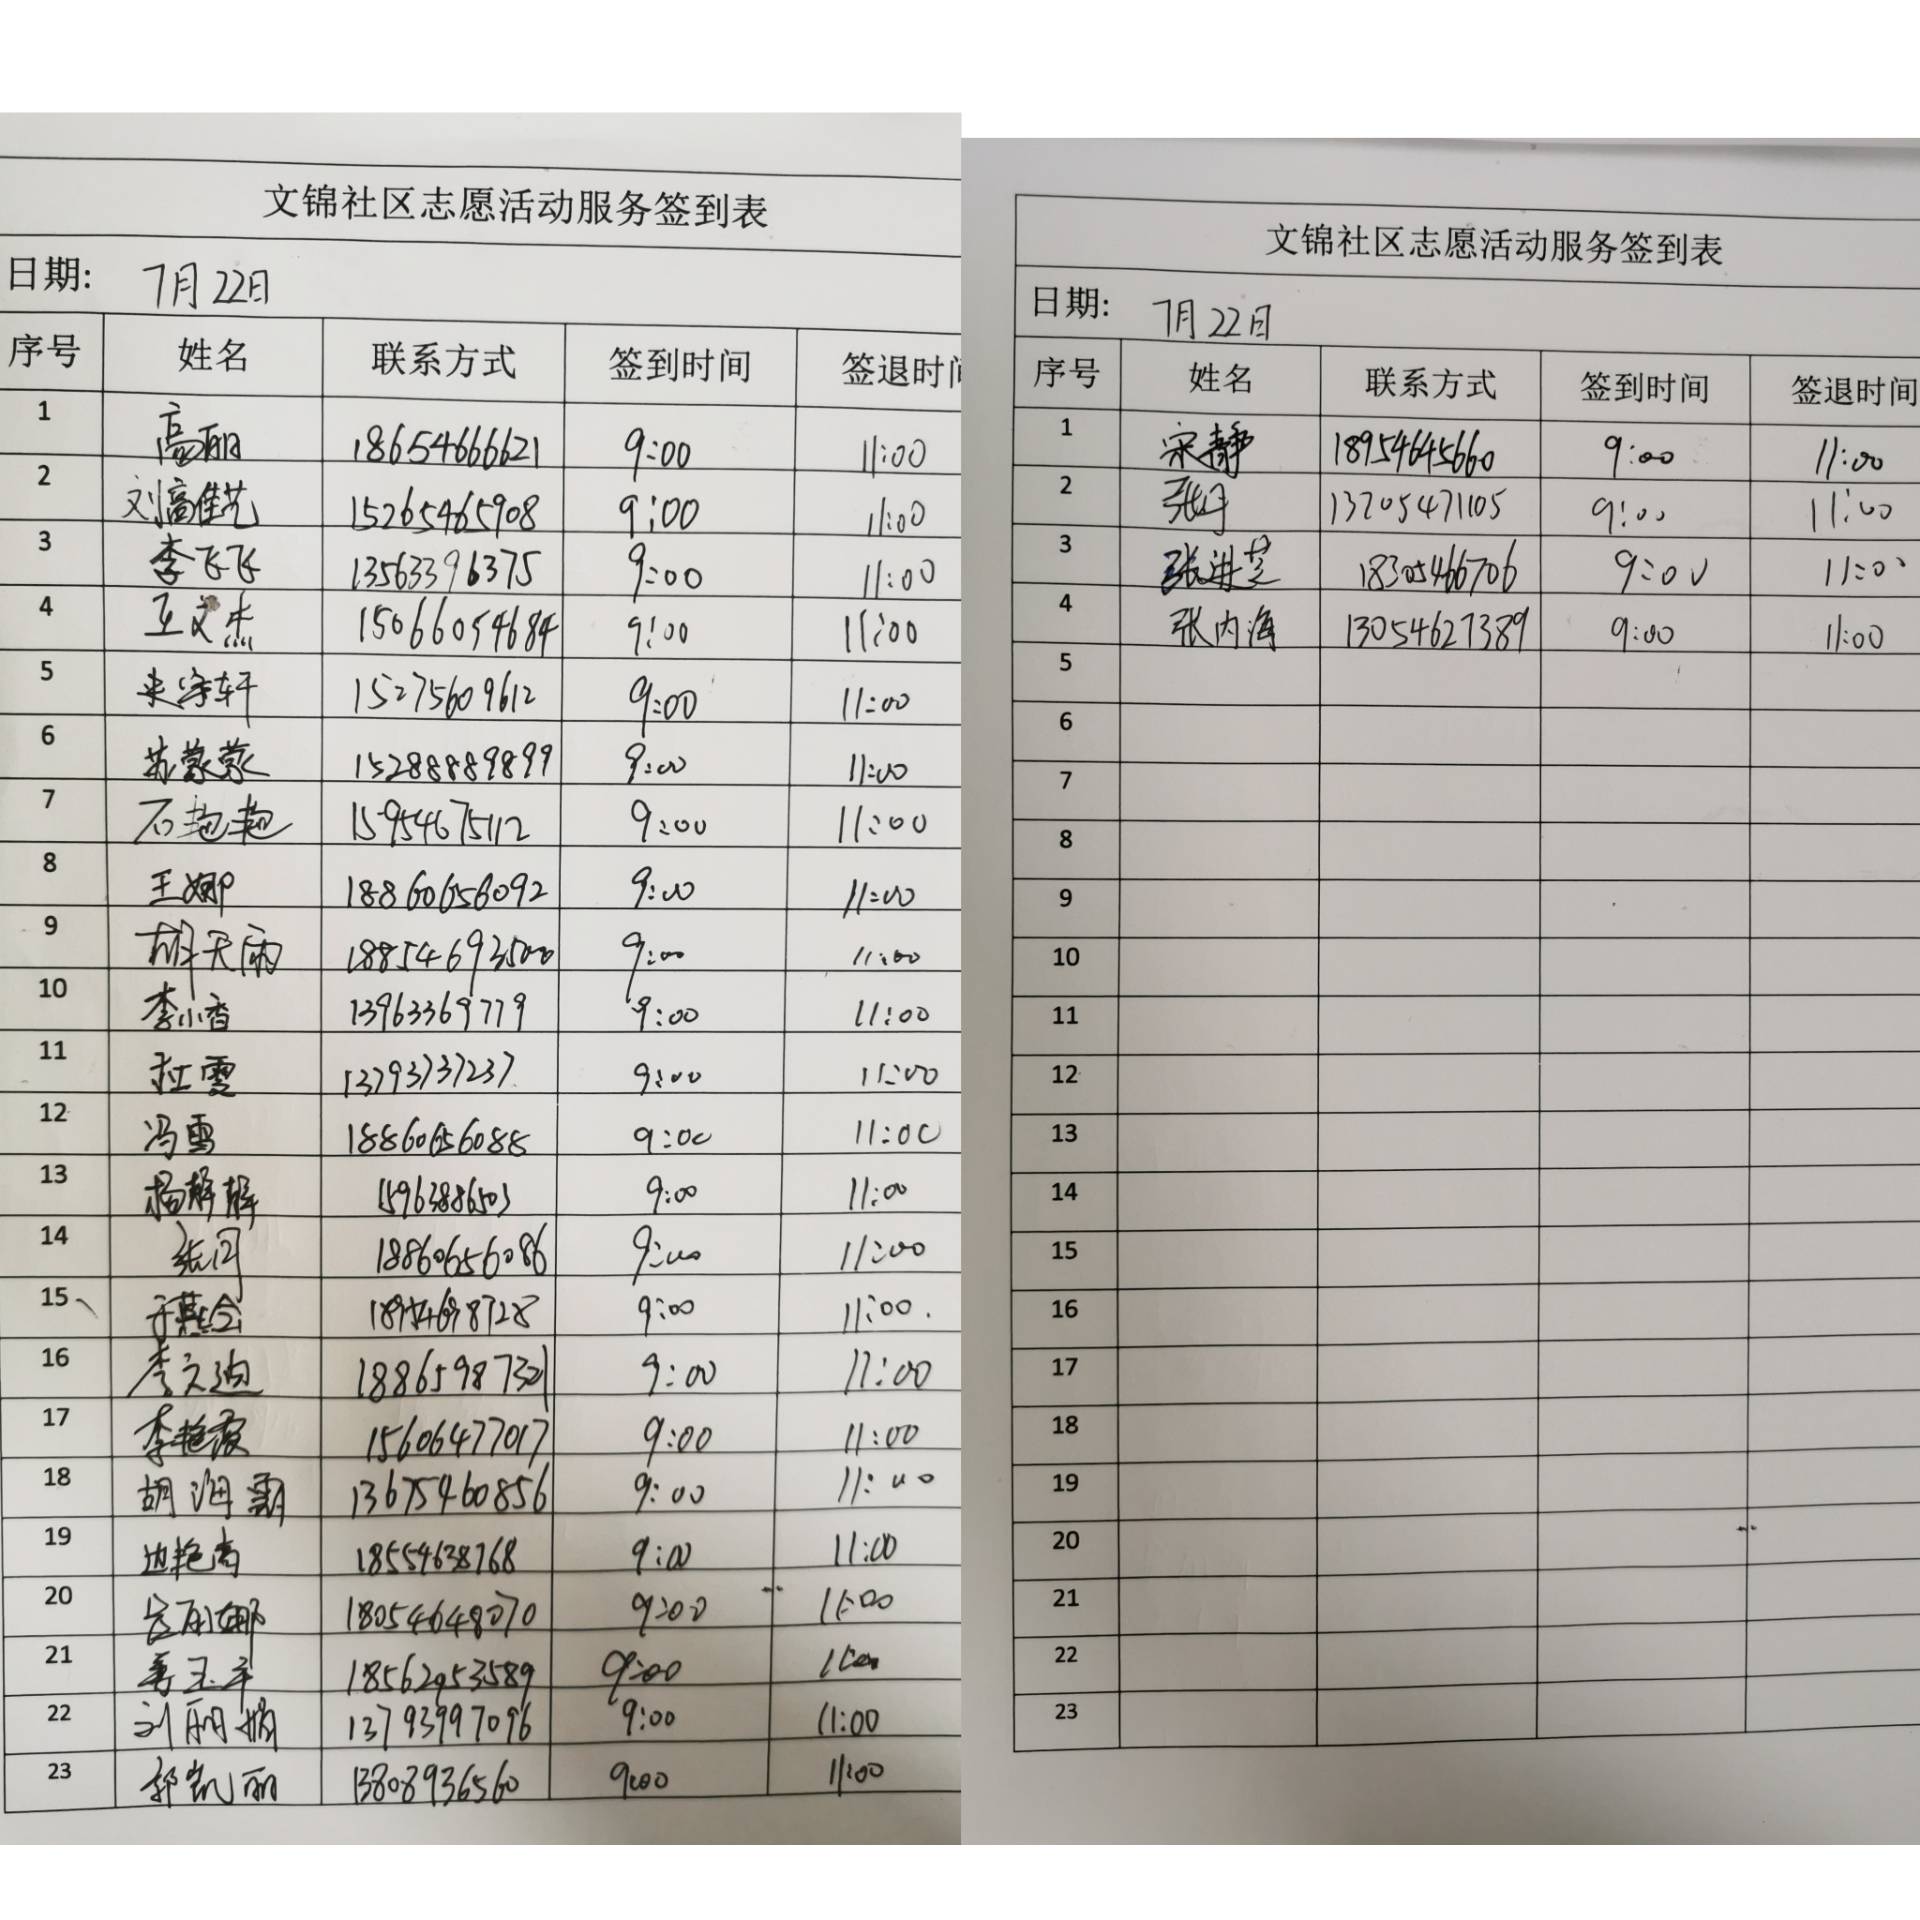 文锦社区志愿活动服务签到表
日期: 7月22日
序号 姓名 联系方式 签到时间 签退时间
1 高丽 18654666621 9:00 11:00
2 刘高佳艺 15265465908 9:00 11:00
3 李飞飞 13563396375 9:00 11:00
4 王文杰 15066054684 9:00 11:00
5 宋宇轩 15275609612 9:00 11:00
6 苏蒙蒙 15288889899 9:00 11:00
7 石艳艳 15954675112 9:00 11:00
8 王娜 18860656092 9:00 11:00
9 胡天雨 18854693500 9:00 11:00
10 李小香 13963369779 9:00 11:00
11 雪 13793737237 9:00 11:00
12 冯雪 18860656088 9:00 11:00
13 杨静静 15963886503 9:00 11:00
14 张闪 18860656086 9:00 11:00
15 18954698728 9:00 11:00
16 李文迪 18865987321 9:00 11:00
17 李艳霞 15606477017 9:00 11:00
18 胡海霸 13675460856 9:00 11:00
19 边艳高 18554638768 9:00 11:00
20 吕丽娜 18054648070 9:00 11:00
21 玉平 18562053589 9:00 11:00
22 刘丽娟 13793997096 9:00 11:00
23 郭凯丽 13808936560 9:00 11:00
文锦社区志愿活动服务签到表
日期: 7月22日
序号 姓名 联系方式 签到时间 签退时间
1 宋静 18954645660 9:00 11:00
2 张丹 13705471105 9:00 11:00
3 张进芝 18305466706 9:00 11:00
4 张内海 13054627389 9:00 11:00
5
6
7
8
9
10
11
12
13
14
15
16
17
18
19
20
21
22
23